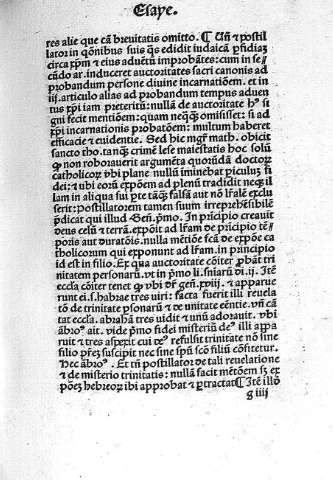 Esaye.
res alie que cā breuitatis omitto. ¶ Un̄ ⁊ postil
lator in q̄onibus suis q̄s edidit iudaicā p̱fidiaȝ
circa xp̄m ⁊ eiꝰ aduentū improbātes: cum in se
cūdo ar. induceret auctoritates sacri canonis ad
probandum persone diuine incarnatōem. et in
iij. articulo alias ad probandum tempus aduen
tus xp̄i iam preteritū: nullā de auctoritate hꝰ si
gni fecit mentiōem: quam neqͣqͣ; omisisset: si ad
xp̄i incarnationis probatōem: multum haberet
efficacie ⁊ euidentie. Sed hic mgr̄ math. obicit
sancto tho. tanqͣ; crimē lese maiestatis hoc solū
q̄ non roborauerit argumēta quorūdā doctoꝝ
catholicoꝝ vbi plane nullū iminebat piculuȝ fi
dei: ⁊ vbi eorū exp̱oēm ad plenū tradidit neqȝ il
lam in aliqua sui p̱te tāqͣ; falsā aut nō lr̄alē exclu
serit: postillatorem tamen suum irreprehēsibilē
p̱dicat qui illud Geñ. pͥmo. In pͥncipio creauit
deus celū ⁊ terrā. exp̱oit ad lr̄am de pͥncipio tē
p̱oris aut duratōis. nullā mētiōe fcā de exp̱oe ca
tholicorum qui exponunt ad lr̄am. in principio
id est in filio. Et qua auctoritate cōiter p̱bāt tri
nitatem personarū. vt in pͥmo li. sniarū di. ij. Itē
eccl̄ia cōiter tenet q̄ vbi dr̄ geñ. xviij. ⁊ apparue
runt ei. s. habrae tres viri: facta fuerit illi reuela
tō de trinitate p̱sonarū ⁊ de vnitate eēntie. vn̄ cā
tat eccl̄ia. abrahā tres vidit ⁊ vnū adorauit. vbi
ābroꝰ. ait. vide pͥmo fidei misteriū dēꝰ illi appa
ruit ⁊ tres aspexit cui deꝰ refulsit trinitatē nō sine
filio pr̄eȝ suscipit nec sine spū scō filiū cōfitetur.
Hec ābroꝰ. Et tn̄ postillator de tali reuelatione
⁊ de misterio trinitatis: nullā facit mētōem sȝ ex
p̱oēȝ hebreoꝝ ibi approbat ⁊ p̱tractat ¶ Itē illō
g iiij